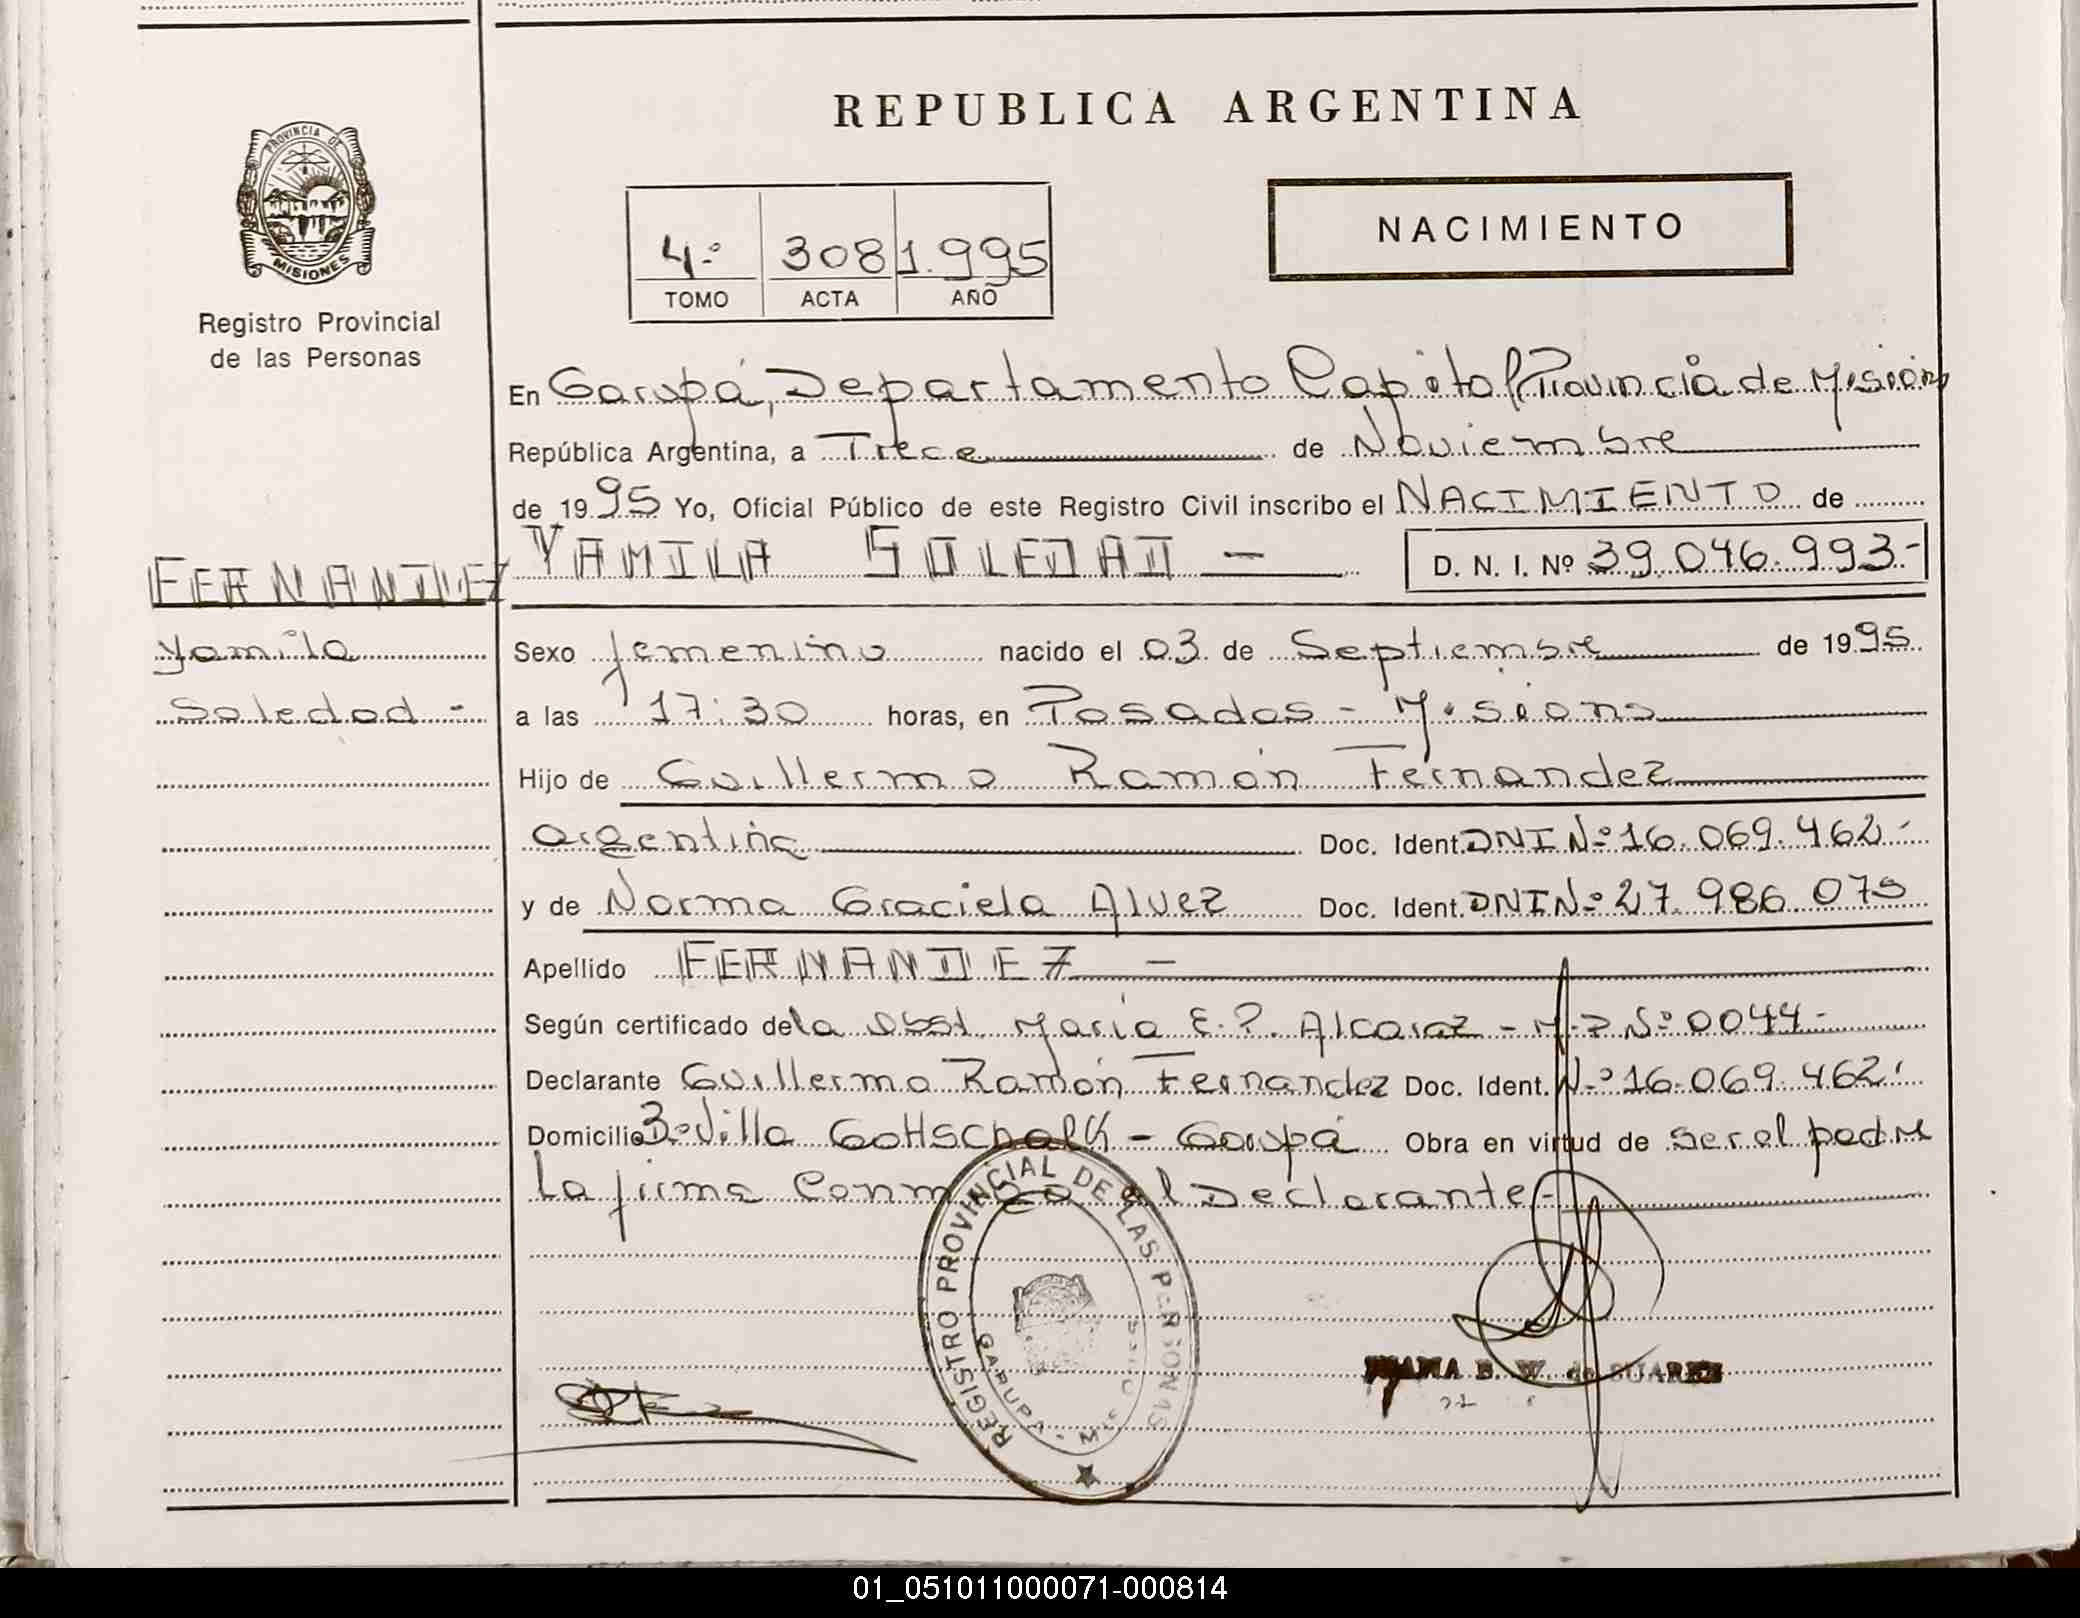 REPUBLICA ARGENTINA
PROVINCIA DE
MISIONES
Registro Provincial
de las Personas
NACIMIENTO
4º 308 1.995
TOMO ACTA AÑO
En Garupá, Departamento Capital Provincia de Misiones
República Argentina, a Trece de Noviembre
de 1995 Yo, Oficial Público de este Registro Civil inscribo el NACIMIENTO de
YAMILA SOLEDAD - D. N. I. Nº 39.046.993-
FERNANDEZ
Yamila
Soledad -
Sexo femenino nacido el 03 de Septiembre de 1995
a las 17:30 horas, en Posadas - Misiones
Hijo de Guillermo Ramón Fernandez
argentina Doc. Ident. DNI Nº 16.069.462-
y de Norma Graciela Alvez Doc. Ident. DNI Nº 27.986.075
Apellido FERNANDEZ -
Según certificado de la Obst. María E. P. Alcaraz - M.P Nº 0044-
Declarante Guillermo Ramón Fernandez Doc. Ident. Nº 16.069.462-
Domicilio Bº Villa Gottschalk - Garupá Obra en virtud de ser el padre
La firma Conmigo el Declarante -
REGISTRO PROVINCIAL DE LAS PERSONAS
GARUPA -
W. de SUAREZ
01_051011000071-000814